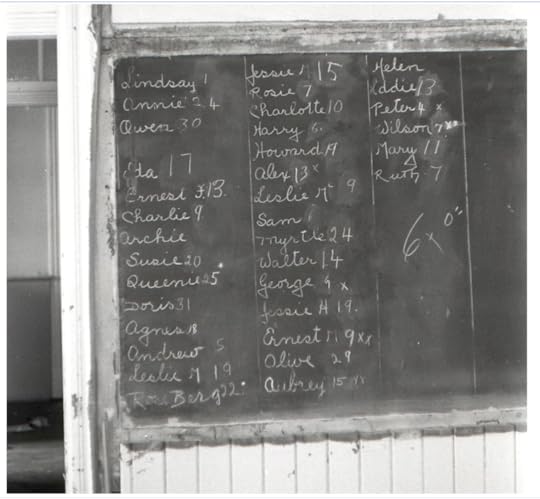 Lindsay 1
Annie 24
Owen 30
Eta 17
Ernest F. 13.
Charlie 9
Archie
Susie 20
Queenie 25
Doris 31
Agnes 18
Andrew 5
Leslie M 19
Rose Berg 22.
Jessie M 15
Rosie 7
Charlotte 10
Harry 6
Howard 19
Alex 13 x
Leslie Mc 9
Sam 1
Myrtle 24
Walter 14
George 9 x
Jessie H 19.
Ernest M 9 xx
Olive 29
Aubrey 15 xx
Helen
Eddie 13
Peter 4 x
Wilson 7 xxx
Mary 11
Ruth 7
6 x 0"